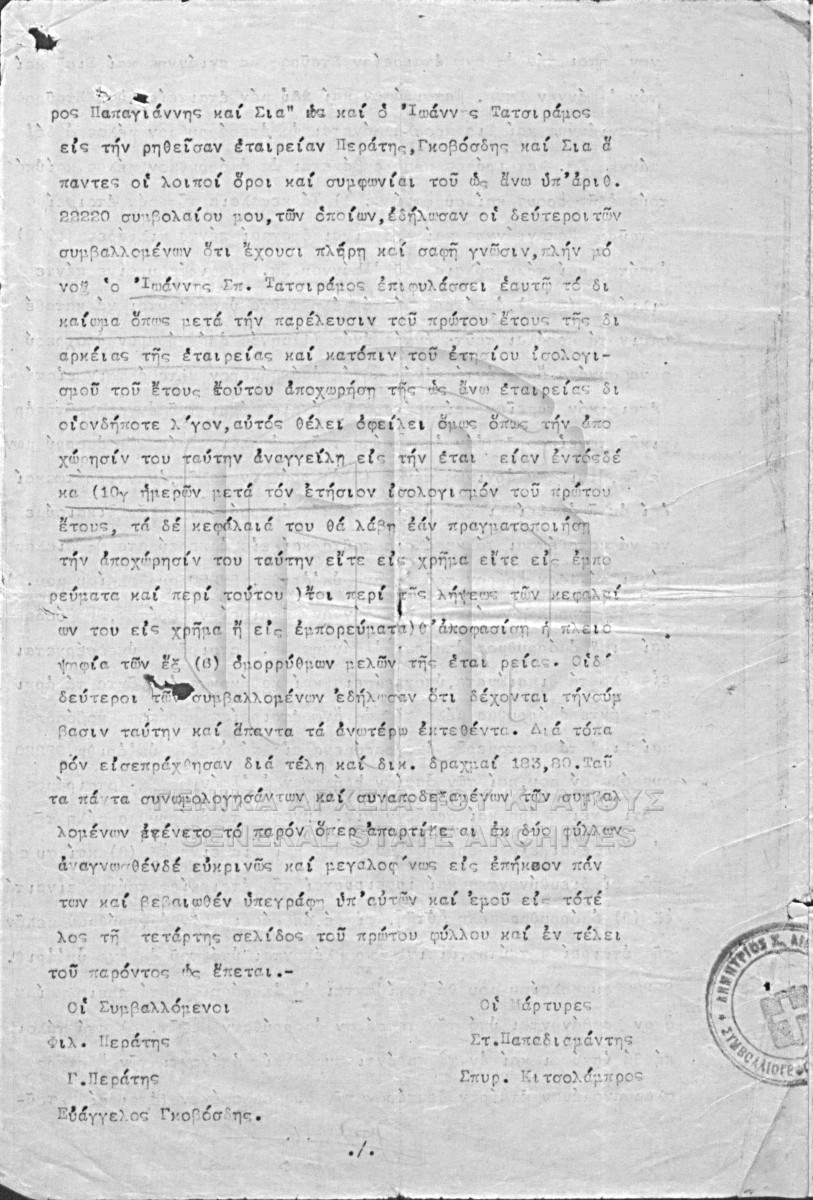 ρος Παπαγιάννης καί Σια" ὡς καί ὁ Ἰωάννης Τατσιράμος
εἰς τήν ρηθεῖσαν ἑταιρείαν Περάτης,Γκοβόσδης καί Σια ἅ
παντες οἱ λοιποί ὅροι καί συμφωνίαι τοῦ ὡς ἄνω ὑπ'ἀριθ.
22220 συμβολαίου μου,τῶν ὁποίων,ἐδήλωσαν οἱ δεύτεροι τῶν
συμβαλλομένων ὅτι ἔχουσι πλήρη καί σαφῆ γνῶσιν,πλήν μό
νον ὁ Ἰωάννης Σπ. Τατσιράμος ἐπιφυλάσσει ἑαυτῷ τό δι
καίωμα ὅπως μετά τήν παρέλευσιν τοῦ πρώτου ἔτους τῆς δι
αρκείας τῆς ἑταιρείας καί κατόπιν τοῦ ἐτησίου ἰσολογι-
σμοῦ τοῦ ἔτους τούτου ἀποχωρήση τῆς ὡς ἄνω ἑταιρείας δι
οἱονδήποτε λόγον,αὐτός θέλει ὀφείλει ὅμως ὅπως τήν ἀπο
χώρησίν του ταύτην ἀναγγείλη εἰς τήν ἑται είαν ἐντός δέ
κα (10γ ἡμερῶν μετά τόν ἐτήσιον ἰσολογισμόν τοῦ πρώτου
ἔτους, τά δέ κεφάλαιά του θά λάβη ἐάν πραγματοποιήση
τήν ἀποχώρησίν του ταύτην εἴτε εἰς χρῆμα εἴτε εἰς ἐμπο
ρεύματα καί περί τούτου )ἤτοι περί τῆς λήψεως τῶν κεφαλαί
ων του εἰς χρῆμα ἤ εἰς ἐμπορεύματα)θ'ἀποφασίση ἡ πλειο
ψηφία τῶν ἕξ (6) ὁμορρύθμων μελῶν τῆς ἑται ρείας. Οἱ δ
δεύτεροι τῶν συμβαλλομένων ἐδήλωσαν ὅτι δέχονται τήν σύμ
βασιν ταύτην καί ἅπαντα τά ἀνωτέρω ἐκτεθέντα. Διά τό πα
ρόν εἰσεπράχθησαν διά τέλη καί δικ. δραχμαί 183,80.Ταῦ
τα πάντα συνωμολογησάντων καί συναποδεξαμένων τῶν συμβαλ
λομένων ἐγένετο τό παρόν ὅπερ ἀπαρτίζεται ἐκ δύο φύλλων
ἀναγνωσθέν δέ εὐκρινῶς καί μεγαλοφώνως εἰς ἐπήκοον πάν
των καί βεβαιωθέν ὑπεγράφη ὑπ'αὐτῶν καί ἐμοῦ εἰς τό τέ
λος τῆ τετάρτης σελίδος τοῦ πρώτου φύλλου καί ἐν τέλει
τοῦ παρόντος ὡς ἕπεται.-
Οἱ Συμβαλλόμενοι
Οἱ Μάρτυρες
Φιλ. Περάτης
Στ.Παπαδιαμάντης
Γ.Περάτης
Σπυρ. Κιτσολάμπρος
Εὐάγγελος Γκοβόσδης.
./.
ΓΕΝΙΚΑ ΑΡΧΕΙΑ ΤΟΥ ΚΡΑΤΟΥΣ
GENERAL STATE ARCHIVES
ΔΗΜΗΤΡΙΟΣ Χ.